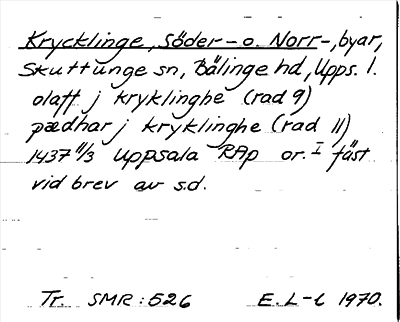 Krycklinge, Söder- o. Norr-, byar,
Skuttunge sn, Bälinge hd, Upps. l.
olaff j kryklinghe (rad 9)
pædhar j kryklinghe (rad 11)
1437 11/3 Uppsala RAp or. I fäst
vid brev av s.d.
Tr. SMR: 526 E. L-l 1970.